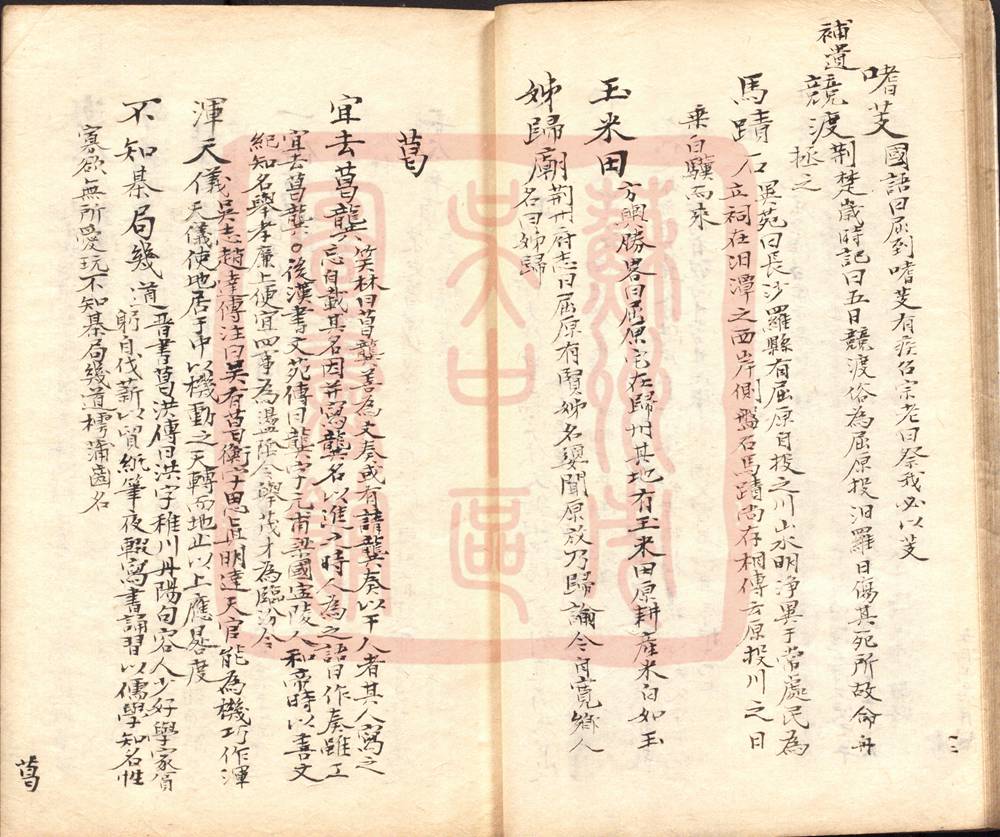 補遺
嗜芰國語曰屈到嗜芰有疾召宗老曰祭我必以芰
競渡荆楚歲時記曰五日競渡俗為屈原投汨羅日傷其死所故命舟
拯之
馬蹟石異苑曰長沙羅縣有屈原自投之川山水明淨異于常處民為
立祠在汨潭之西岸側盤石馬蹟尚存相傳云原投川之日
乗白驥而來
玉米田方輿勝畧曰屈原宅在歸州其地有玉米田原耕産米白如玉
姊歸廟荆州府志曰屈原有賢姊名嬃聞原放乃歸諭令自寛鄉人
名曰姊歸
葛
宜去葛龔笑林曰葛龔善為文奏或有請龔奏以干人者其人寫之
忘自載其名因并寫龔名以進之時人為之語曰作奏雖工
宜去葛龔○後漢書文苑傳曰龔字元甫梁國寧陵人和帝時以善文
紀知名舉孝廉上便宜四事為盪陰令舉茂才為臨汾令
渾天儀吳志趙達傳注曰吳有葛衡字思真明達天官能為機巧作渾
天儀使地居于中以機動之天轉而地止以上應晷度
不知棊局幾道晋書葛洪傳曰洪字稚川丹陽句容人少好學家貧
躬自伐薪以貿紙筆夜輟寫書誦習以儒學知名性
寡欲無所愛玩不知棊局幾道樗蒲齒名
葛
蘇州市
吳中區
圖書館